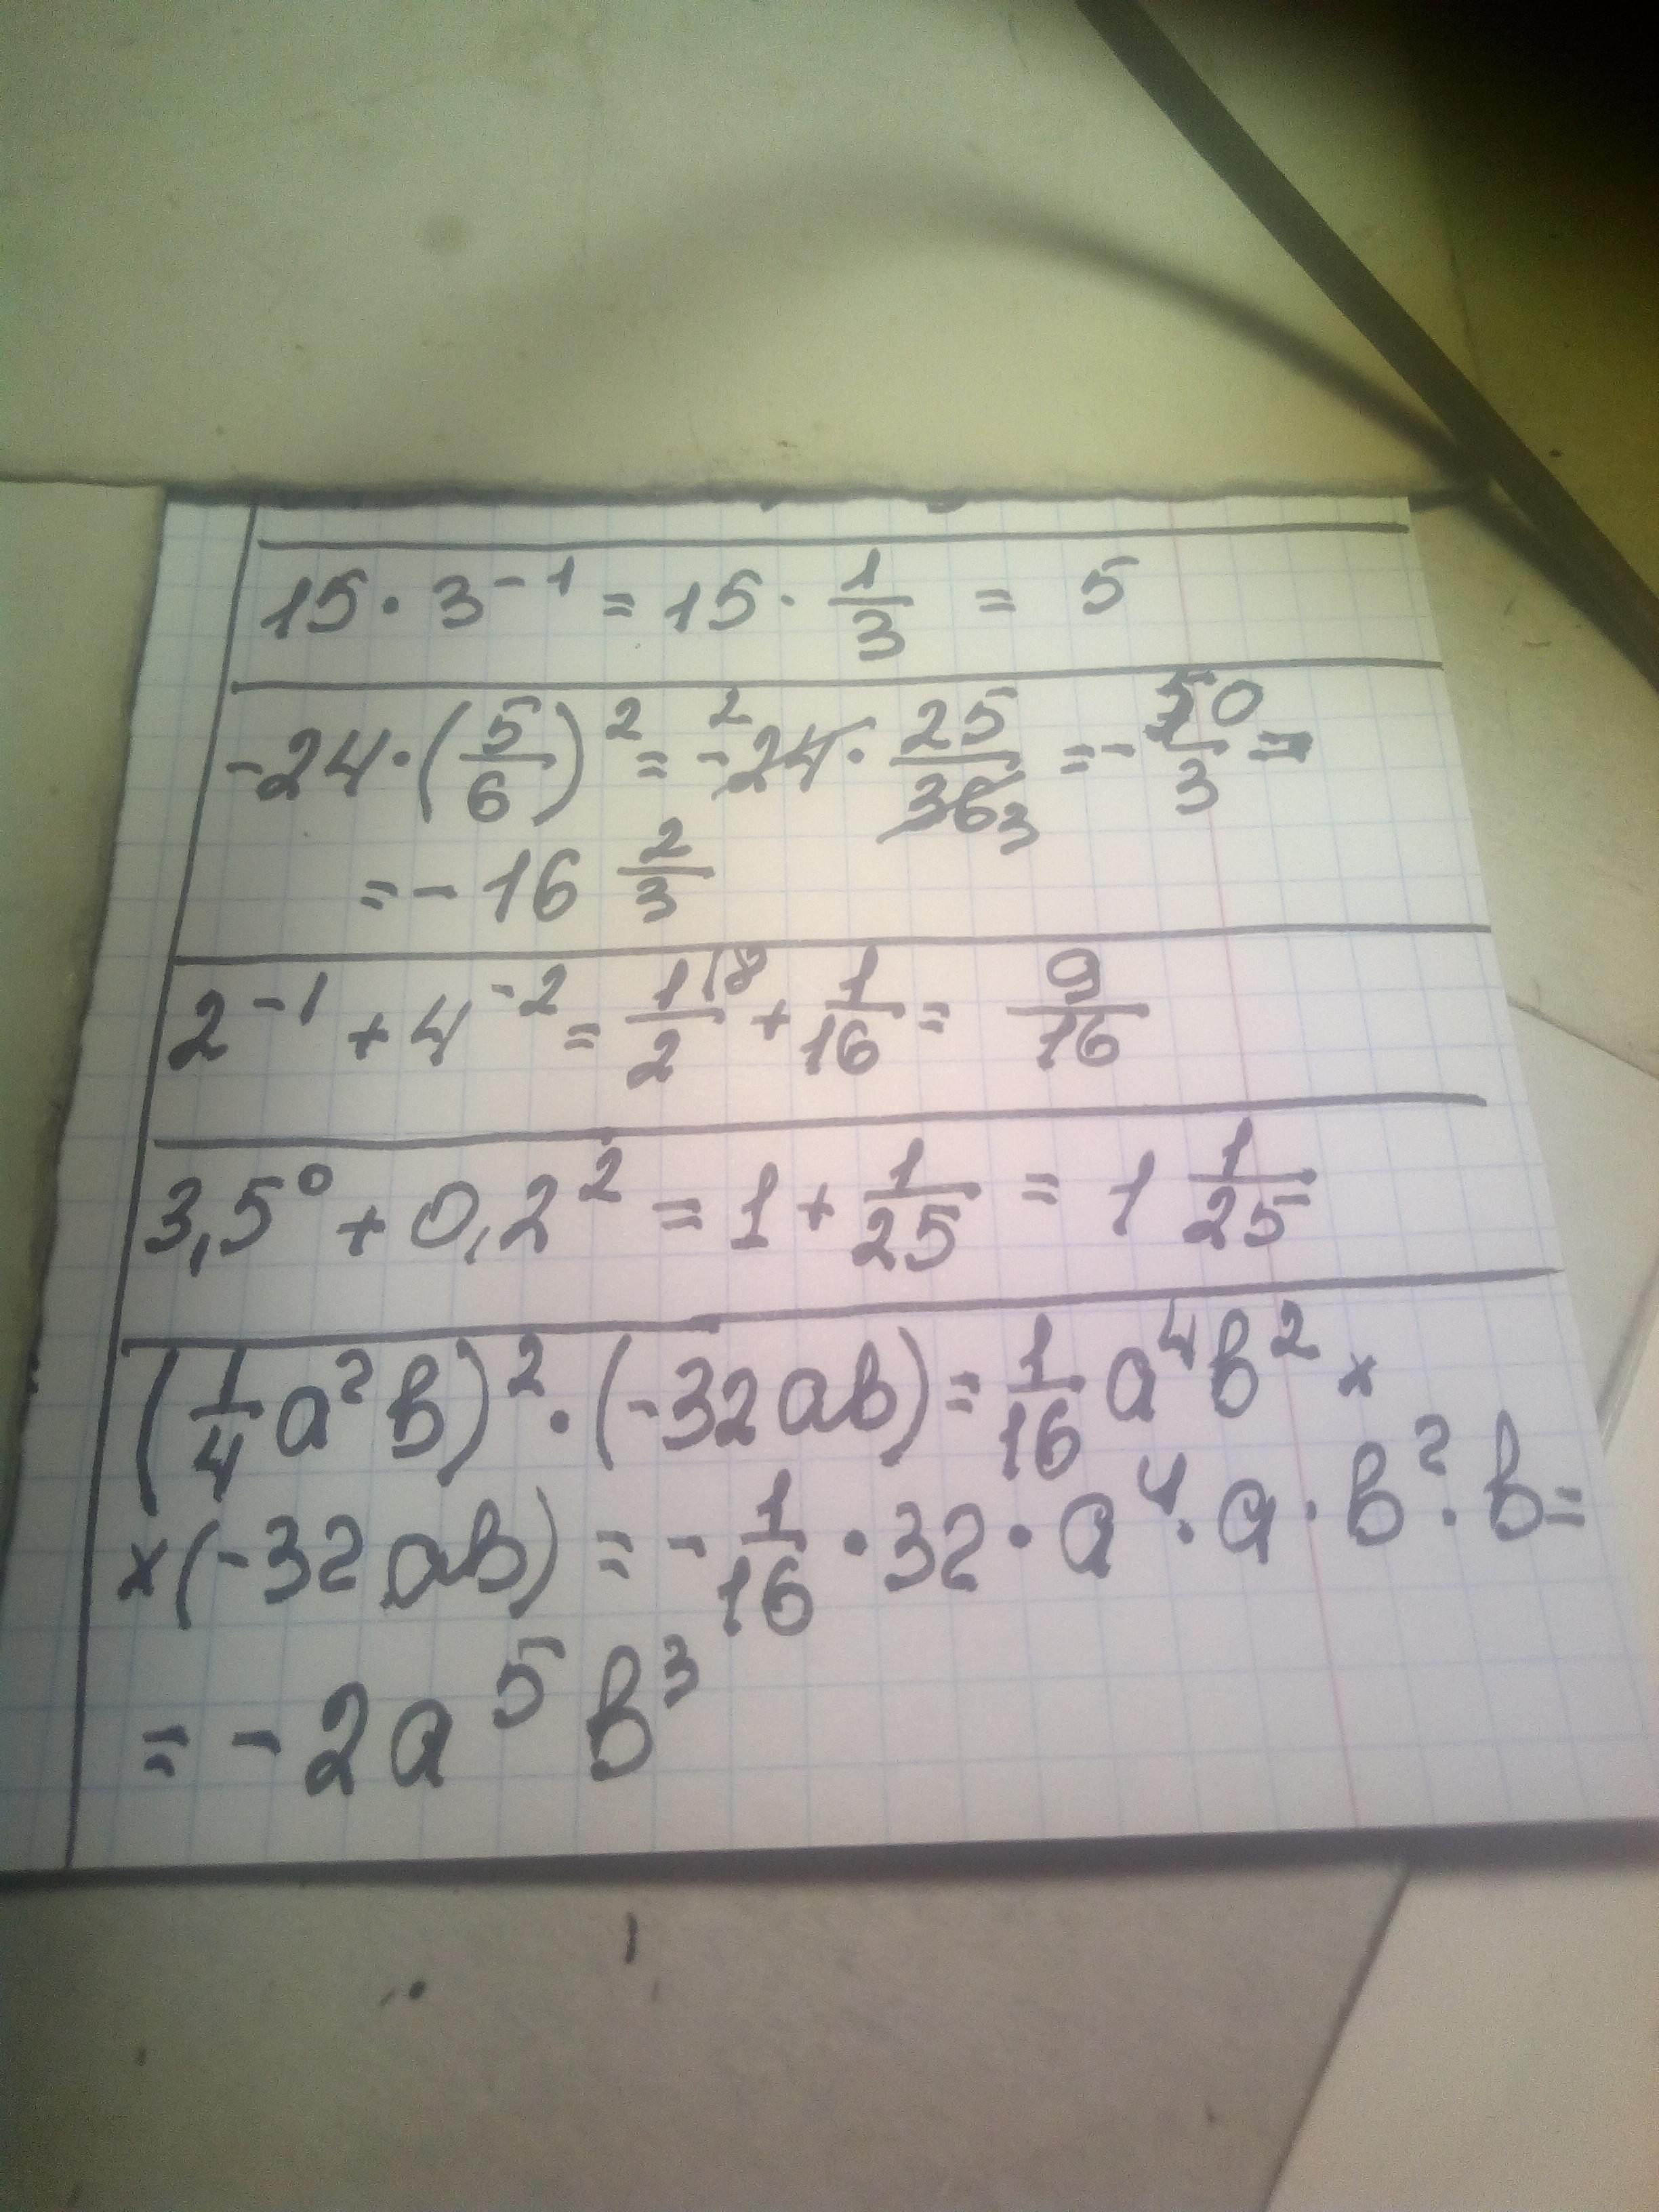 15 · 3⁻¹ = 15 · 1/3 = 5
-24 · (5/6)² = -24² · 25/36₃ = -50/3 =
= -16 2/3
2⁻¹ + 4⁻² = 1⁽⁸/2 + 1/16 = 9/16
3,5⁰ + 0,2² = 1 + 1/25 = 1 1/25
(1/4 a²b)² · (-32ab) = 1/16 a⁴b² ×
× (-32ab) = -1/16 · 32 · a⁴ · a · b² · b =
= -2a⁵b³